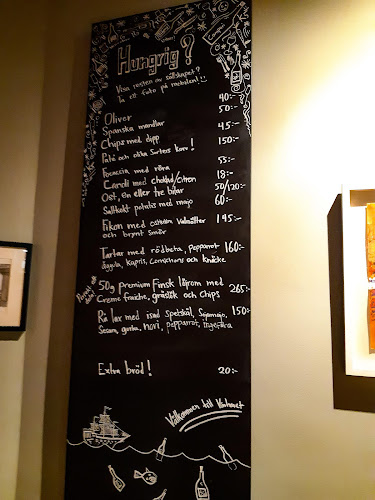 Hungrig?
Visa resten av sällskapet?
Ta ett foto på matalen!
Oliver 40:-
Spanska mandlar 50:-
Chips med dipp 45:-
Paté och olika Sorters korv! 150:-
Focaccia med röra 55:-
Canoli med choklad/citron 18:-
Ost, en eller tre bitar 50/120:-
Saltkokt potatis med majo 60:-
Fikon med Valnötter 145:-
och brynt Smör
Tartar med rödbeta, pepparrot 160:-
kapris, Cornichons och knäcke
50g premium Finsk löjrom med 265:-
Creme fraiche, gräslök och Chips
Rå lax med isad Spetskål, Sojamajo, 150:-
Sesam, gurka, nori, pepparrot, ingefära
Extra bröd! 20:-
Välkommen till